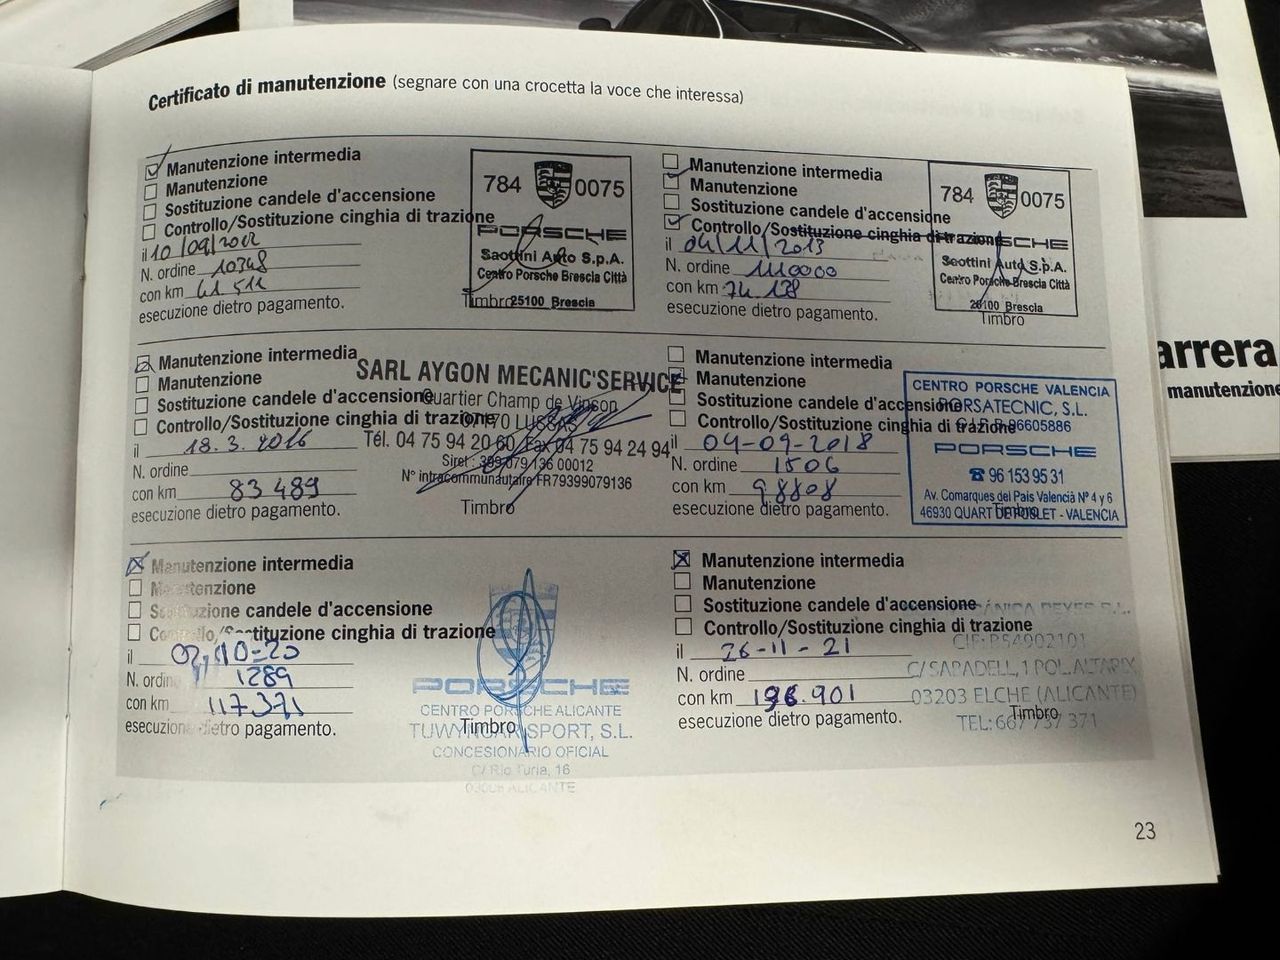 Certificato di manutenzione (segnare con una crocetta la voce che interessa)
Manutenzione intermedia
Manutenzione
Sostituzione candele d'accensione
Controllo/Sostituzione cinghia di trazione
il 10/09/2012
N. ordine 10348
con km 61 511
esecuzione dietro pagamento.
784 0075
PORSCHE
Saottini Auto S.p.A.
Centro Porsche Brescia Città
Timbro 25100 Brescia
Manutenzione intermedia
Manutenzione
Sostituzione candele d'accensione
Controllo/Sostituzione cinghia di trazione
il 04/11/2013
N. ordine 1110000
con km 74 138
esecuzione dietro pagamento.
784 0075
PORSCHE
Saottini Auto S.p.A.
Centro Porsche Brescia Città
25100 Brescia
Timbro
Manutenzione intermedia
Manutenzione
Sostituzione candele d'accensione
Controllo/Sostituzione cinghia di trazione
il 18.3.2016
N. ordine
con km 83 489
esecuzione dietro pagamento.
SARL AYGON MECANIC'SERVICE
Quartier Champ de Vinson
07170 LUSSAS
Tél. 04 75 94 20 60 Fax 04 75 94 24 94
Siret : 399 079 136 00012
N° intracommunautaire FR79399079136
Timbro
Manutenzione intermedia
Manutenzione
Sostituzione candele d'accensione
Controllo/Sostituzione cinghia di trazione
il 04-09-2018
N. ordine 1506
con km 98808
esecuzione dietro pagamento.
CENTRO PORSCHE VALENCIA
PORSATECNIC, S.L.
C.I.F. B-96605886
PORSCHE
☎ 96 153 95 31
Av. Comarques del Pais Valencià Nº 4 y 6
46930 QUART DE POBLET - VALENCIA
Timbro
Manutenzione intermedia
Manutenzione
Sostituzione candele d'accensione
Controllo/Sostituzione cinghia di trazione
il 02-10-20
N. ordine 1289
con km 117.371
esecuzione dietro pagamento.
PORSCHE
CENTRO PORSCHE ALICANTE
Timbro
SPORT, S.L.
CONCESIONARIO OFICIAL
C/ Rio Turia, 16
03006 ALICANTE
Manutenzione intermedia
Manutenzione
Sostituzione candele d'accensione
Controllo/Sostituzione cinghia di trazione
il 26-11-21
N. ordine
con km 196.901
esecuzione dietro pagamento.
REYES S.L.
CIF: B54902101
C/ SAPADELL, 1 POL. ALTABIX
03203 ELCHE (ALICANTE)
Timbro
TEL: 667 737 371
23
arrera
manutenzione